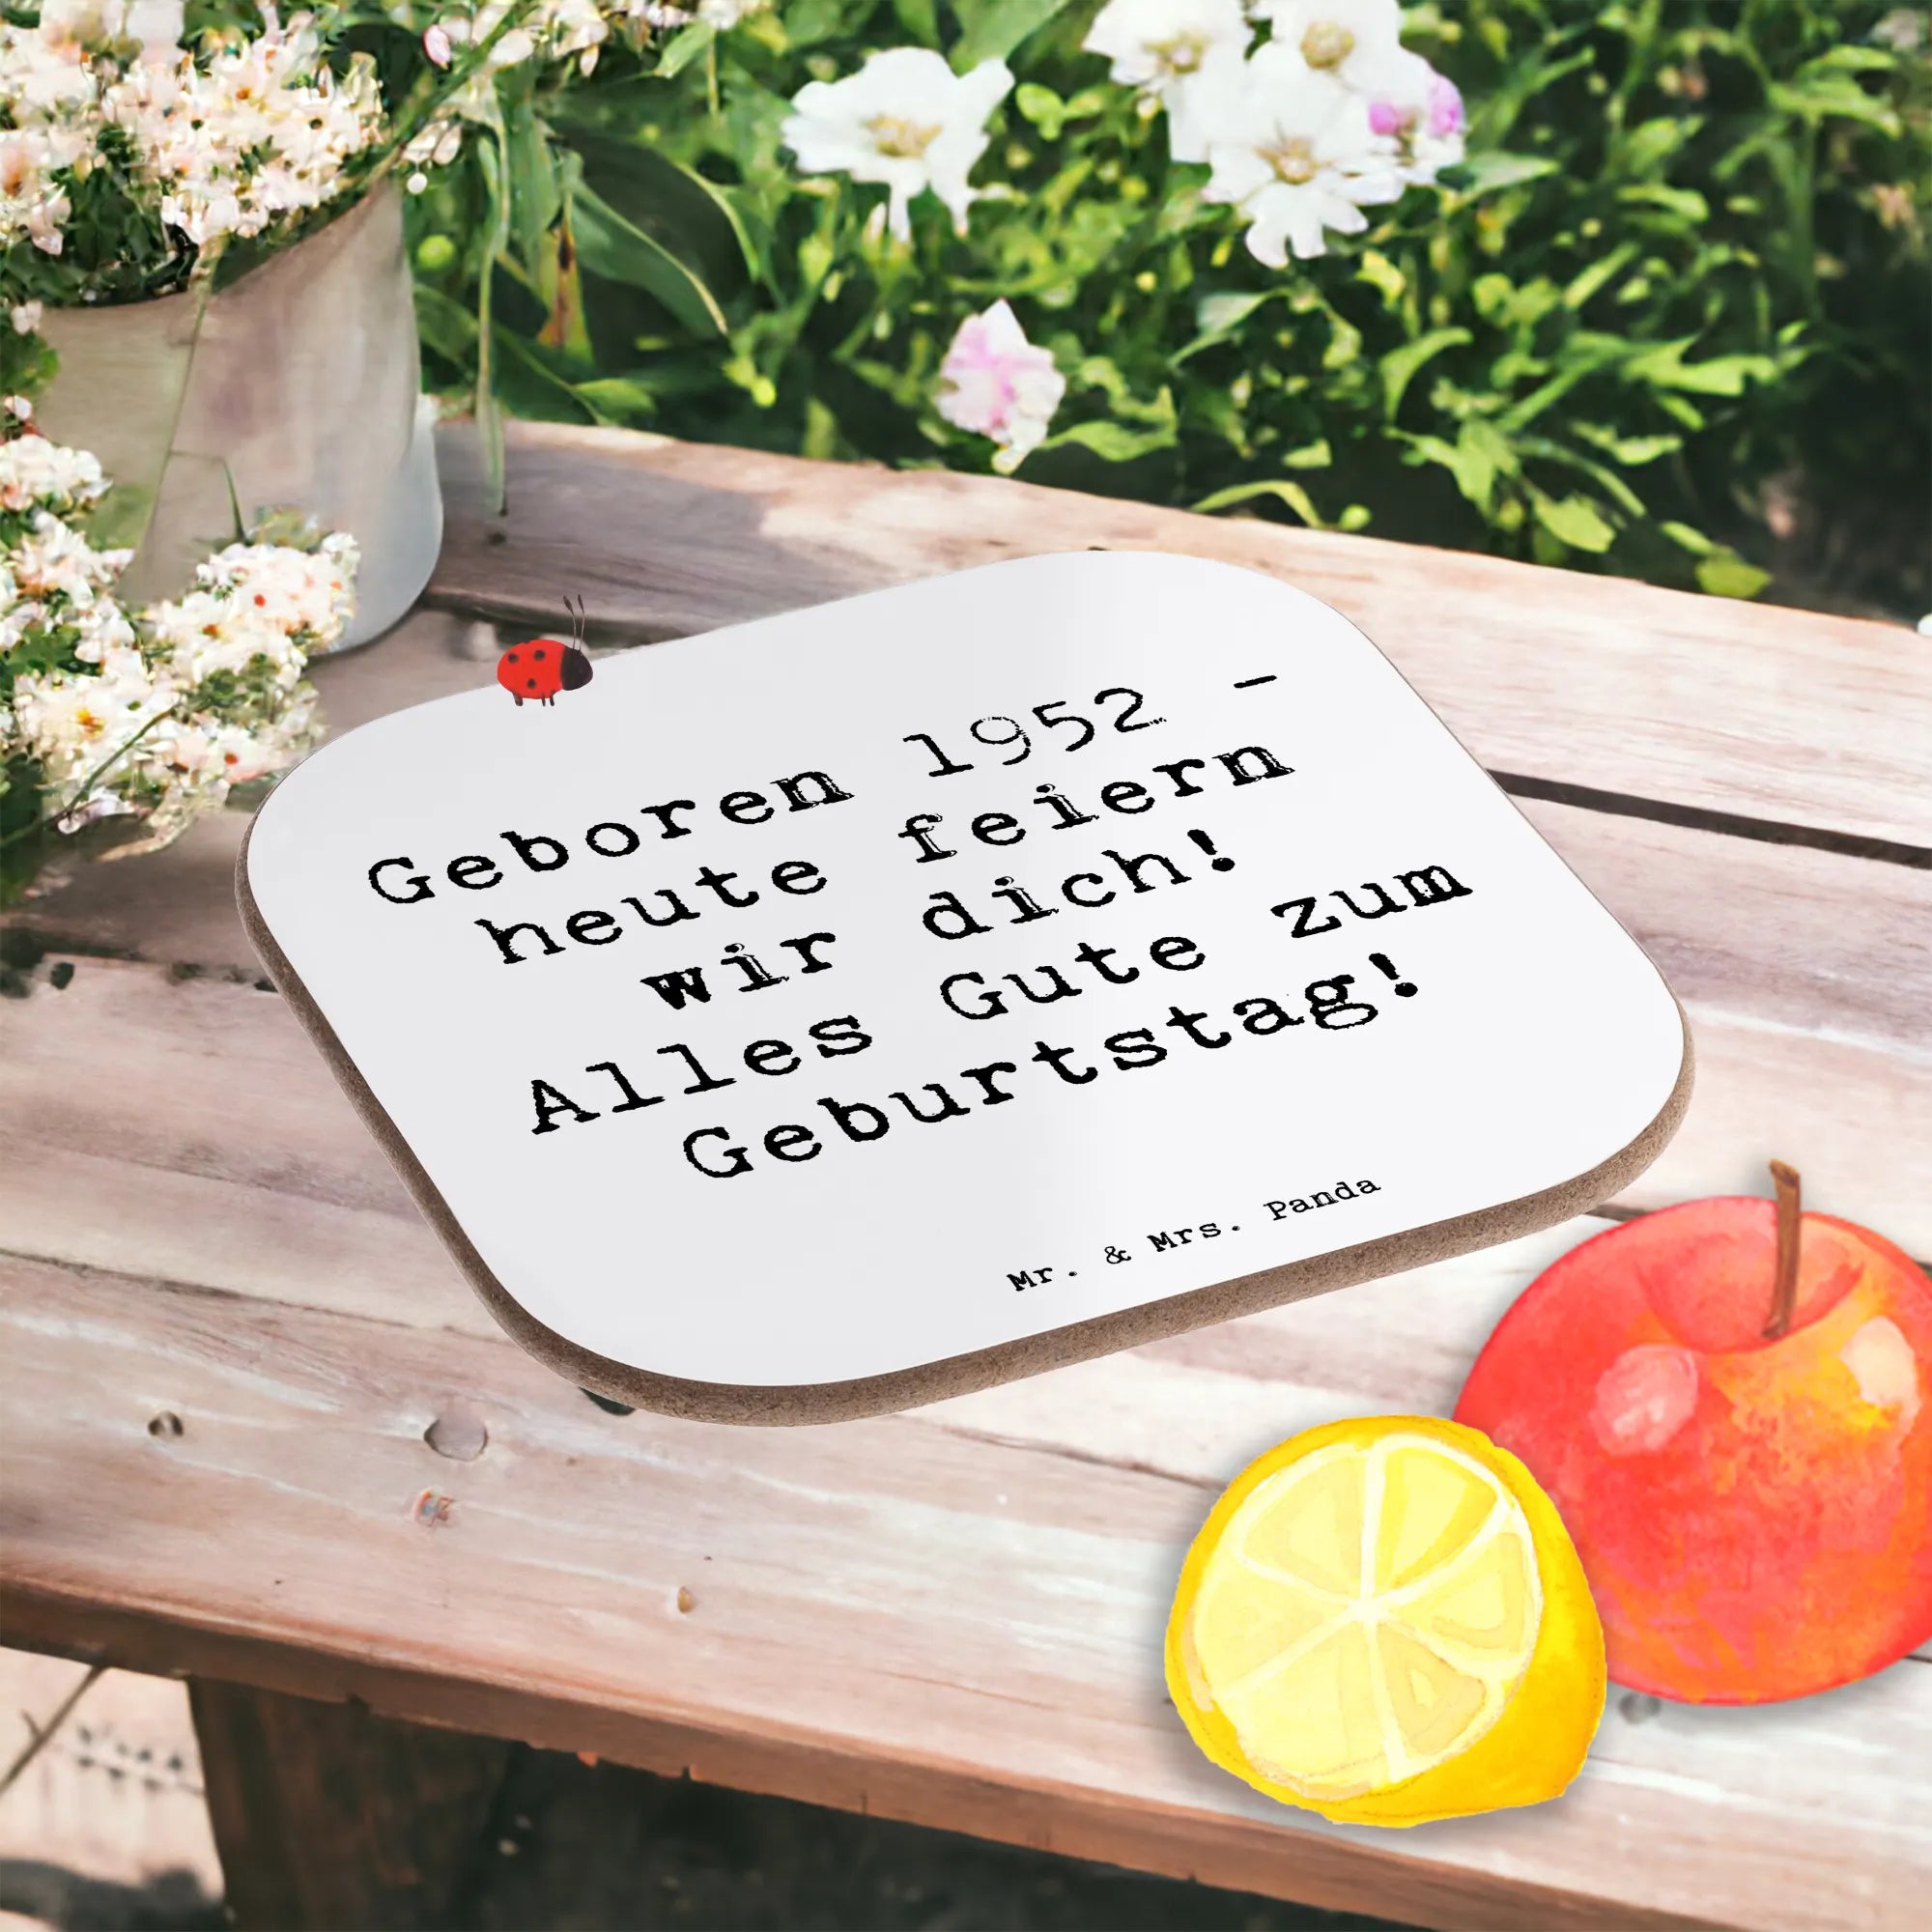 Geboren 1952 -
heute feiern
wir dich!
Alles Gute zum
Geburtstag!
Mr. & Mrs. Panda